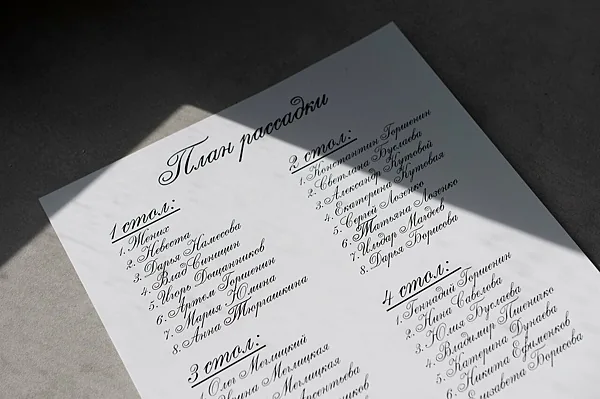 План рассадки
1 стол:
1. Жених
2. Невеста
3. Дарья Намесова
4. Влад Синишин
5. Игорь Дощанников
6. Артем Горшенин
7. Мария Юмина
8. Анна Тюрташкина
2 стол:
1. Константин Горшенин
2. Светлана Буслаева
3. Александр Кутовой
4. Екатерина Кутовая
5. Сергей Лозенко
6. Татьяна Лозенко
7. Ильдар Магдеев
8. Дарья Борисова
3 стол:
1. Олег Меглицкий
Меглицкая
Меглицкая
4 стол:
1. Геннадий Горшенин
2. Нина Савелова
3. Юлия Буслаева
4. Владимир Пшеничко
5. Катерина Дунаева
6. Никита Ефименков
Борисова